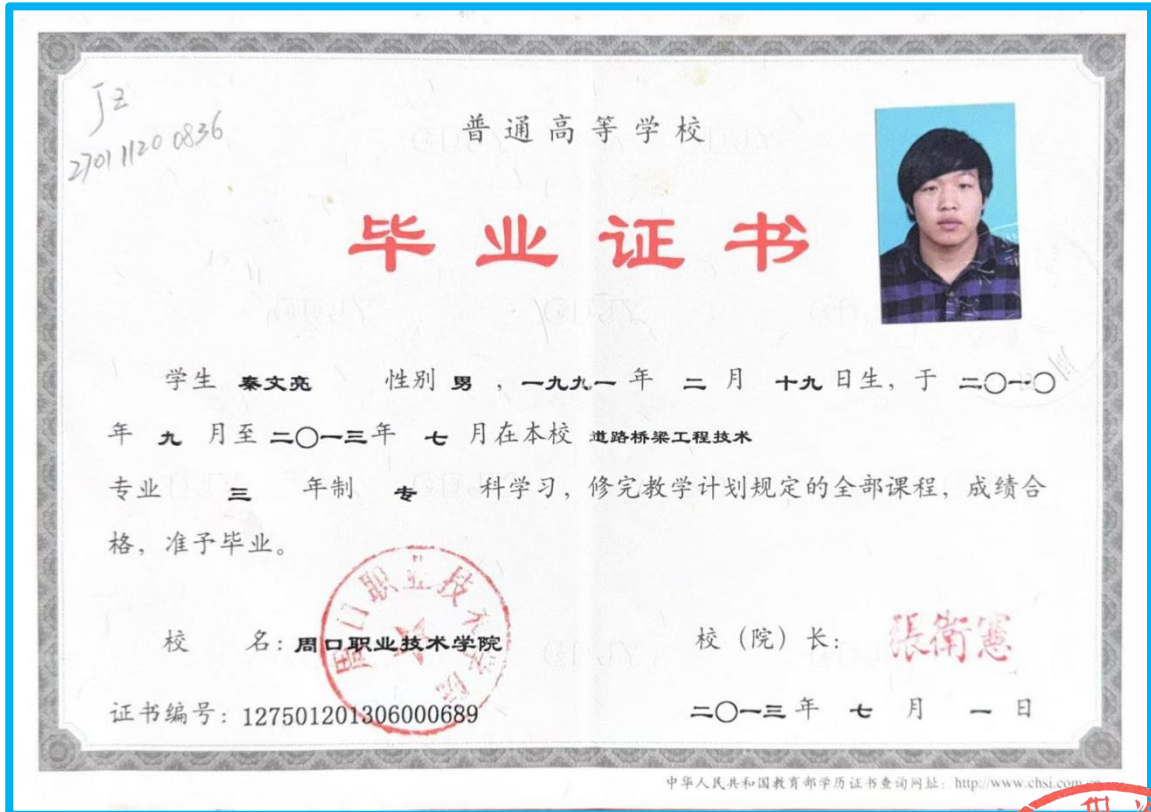 JZ
27011120 0836
普通高等学校
毕业证书
学生 秦文亮 性别 男 ，一九九一 年 二 月 十九 日生，于 二〇一〇
年 九 月至 二〇一三年 七 月在本校 道路桥梁工程技术
专业 三 年制 专 科学习，修完教学计划规定的全部课程，成绩合
格，准予毕业。
周口职业技术学院
校 名：周口职业技术学院
校（院）长： 張衛憲
证书编号：127501201306000689
二〇一三 年 七 月 一 日
中华人民共和国教育部学历证书查询网址：http://www.chsi.com.cn